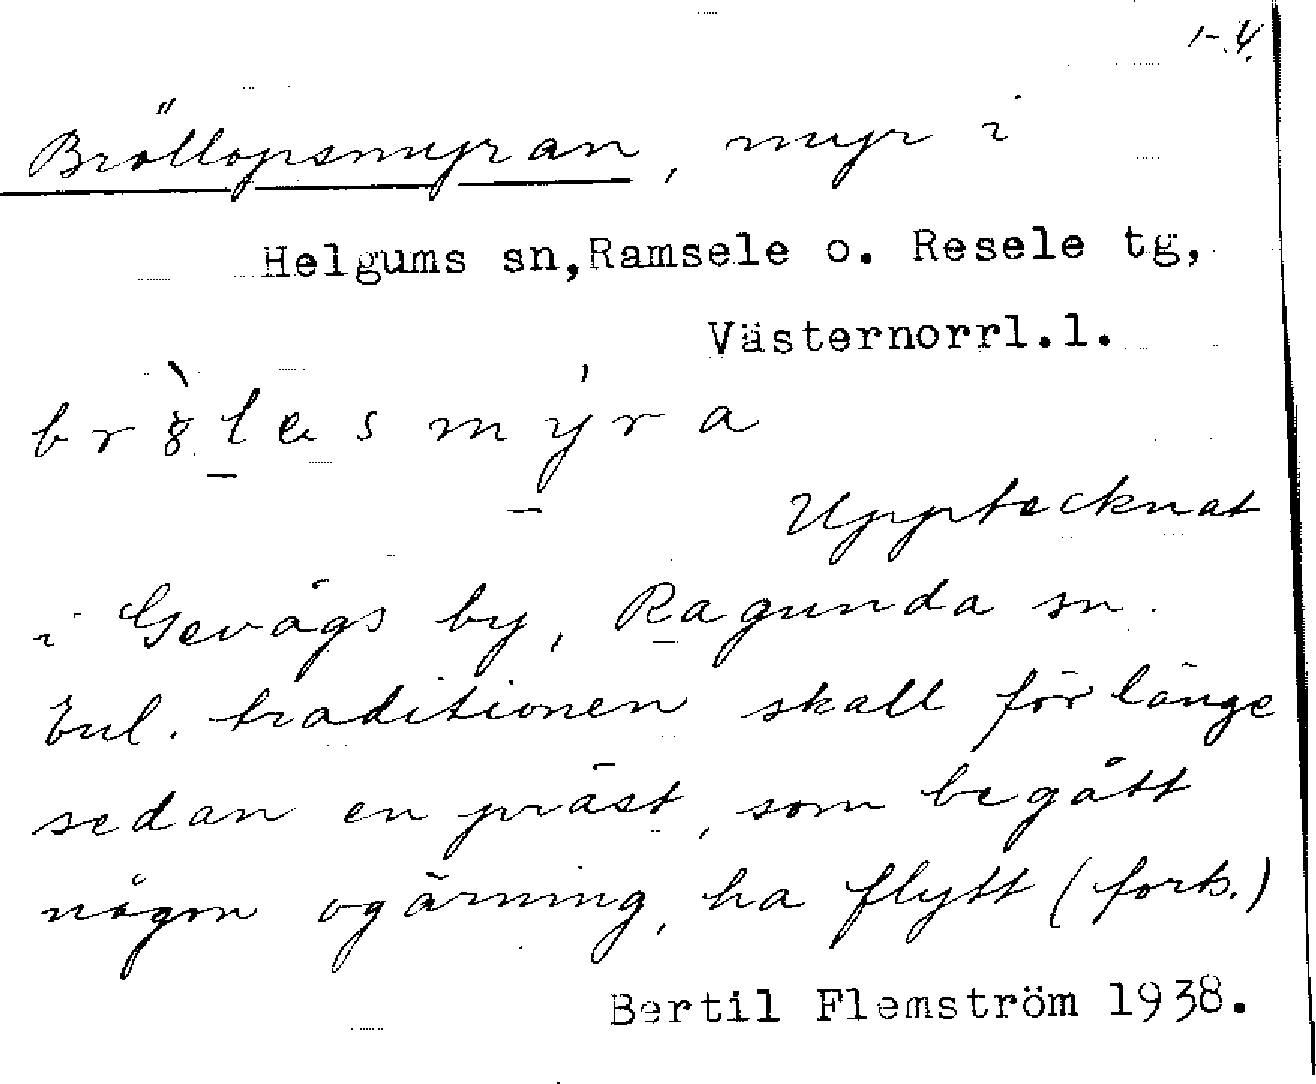 1-4.
Bröllopsmyran, myr i
Helgums sn, Ramsele o. Resele tg,
Västernorrl.l.
Upptecknat
i Gevågs by, Ragunda sn.
Enl. traditionen skall för länge
sedan en präst, som begått
någon ogärning, ha flytt (forts.)
Bertil Flemström 1938.